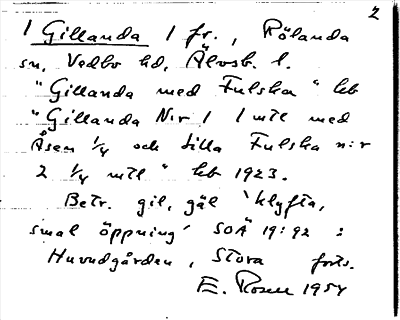 2
1 Gillanda 1 fr., Rölanda
sn, Vedbo hd, Älvsb. l.
"Gillanda med Fulska" lb
"Gillanda Nr 1 1 mtl med
Åsen 1/4 och Lilla Fulska n:r
2 1/4 mtl" lb 1923.
Betr. gil, gäl 'klyfta,
smal öppning' SOÄ 19:92 :
Huvudgården, Stora forts.
E. Rosell 1954